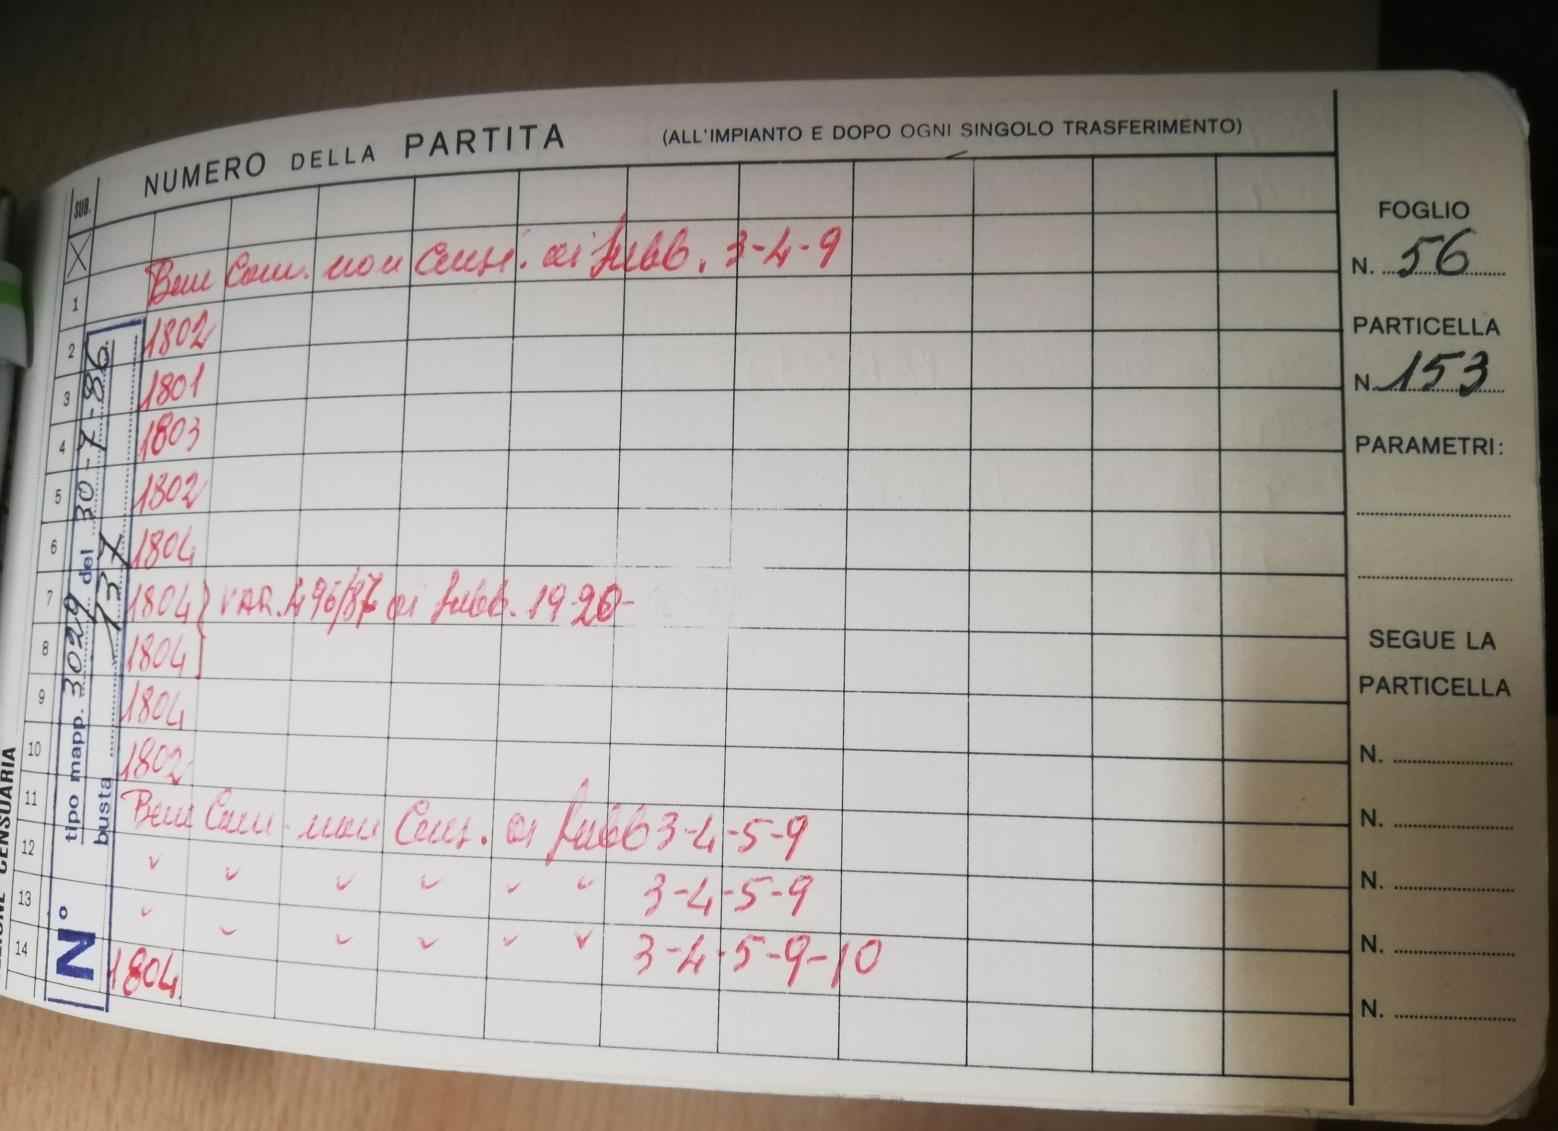 NUMERO DELLA PARTITA (ALL'IMPIANTO E DOPO OGNI SINGOLO TRASFERIMENTO)
SUB.
X
1 Beni Com. non Cens. ai subb. 3-4-9
2 1802
3 1801
4 1803
5 1802
6 1804
7 1804 } VAR. 496/87 ai subb. 19-20-
8 1804
9 1804
10 1802
11 Beni Com. non Cens. ai subb 3-4-5-9
12 " " " " " " 3-4-5-9
13 " " " " " " 3-4-5-9-10
14 1804
N° tipo mapp. 3029 del 30-7-86
busta 137
CENSUARIA
FOGLIO
N. 56
PARTICELLA
N. 153
PARAMETRI:
SEGUE LA
PARTICELLA
N.
N.
N.
N.
N.